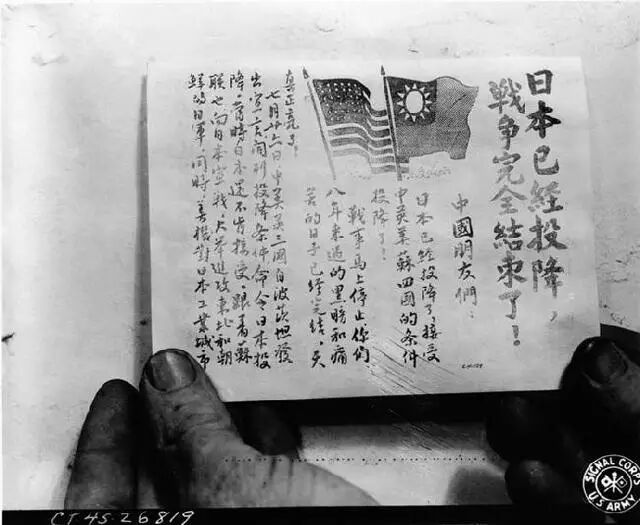 日本已经投降，
戰争完全結束了！
中國朋友們：
日本已經投降了，接受
中英美蘇四國的条件
投降了！
戰事馬上停止，你們
八年来過的黑暗和痛
苦的日子已經完結，天
真正亮了。
七月廿六日中美英三國自波茨坦發
出宣言開列投降条件命令日本投
降，當時日本還不肯接受。跟着蘇
联也向日本宣战，大举進攻東北和朝
鮮的日軍，同時美機對日本工業城市
CT-45-26819
SIGNAL CORPS
U.S. ARMY